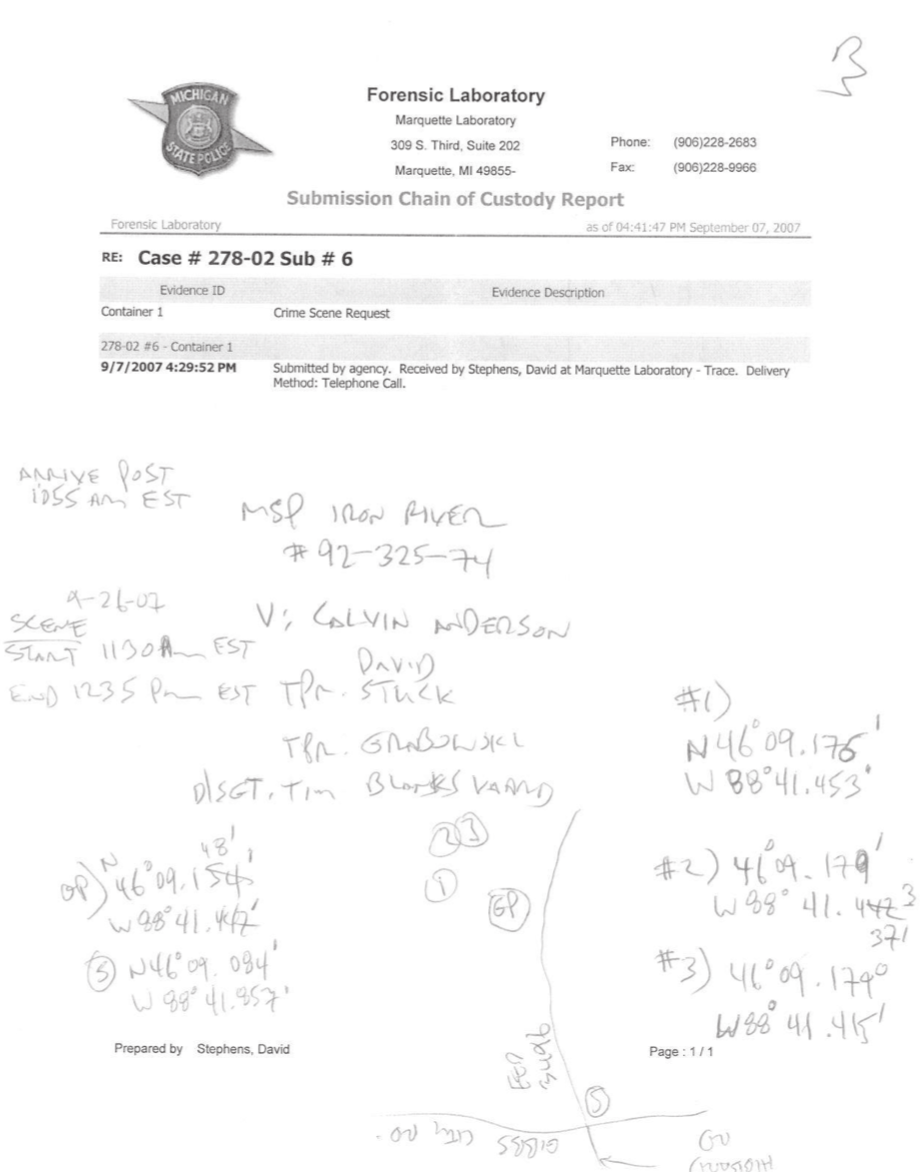 MICHIGAN
STATE POLICE
Forensic Laboratory
Marquette Laboratory
309 S. Third, Suite 202
Marquette, MI 49855-
Phone: (906)228-2683
Fax: (906)228-9966
Submission Chain of Custody Report
Forensic Laboratory as of 04:41:47 PM September 07, 2007
RE: Case # 278-02 Sub # 6
Evidence ID Evidence Description
Container 1 Crime Scene Request
278-02 #6 - Container 1
9/7/2007 4:29:52 PM Submitted by agency. Received by Stephens, David at Marquette Laboratory - Trace. Delivery
Method: Telephone Call.
ARRIVE POST
1055 AM EST
MSP IRON RIVER
# 92-325-74
9-26-07
SCENE
START 1130 AM EST
END 1235 PM EST
V: CALVIN ANDERSON
DAVID
TPR. STUCK
TPR. GRABOWSKI
D/SGT. TIM
#1)
N 46° 09.176'
W 88° 41.453'
#2) 46° 09.179'
W 88° 41.
371
#3) 46° 09.179°
W 88° 41.415'
N 48'
GP) 46° 09.154'
W 88° 41.
S N 46° 09.084'
W 88° 41.857'
2 3
1
GP
S
GIBBS CITY RD.
CO
Prepared by Stephens, David
Page : 1 / 1